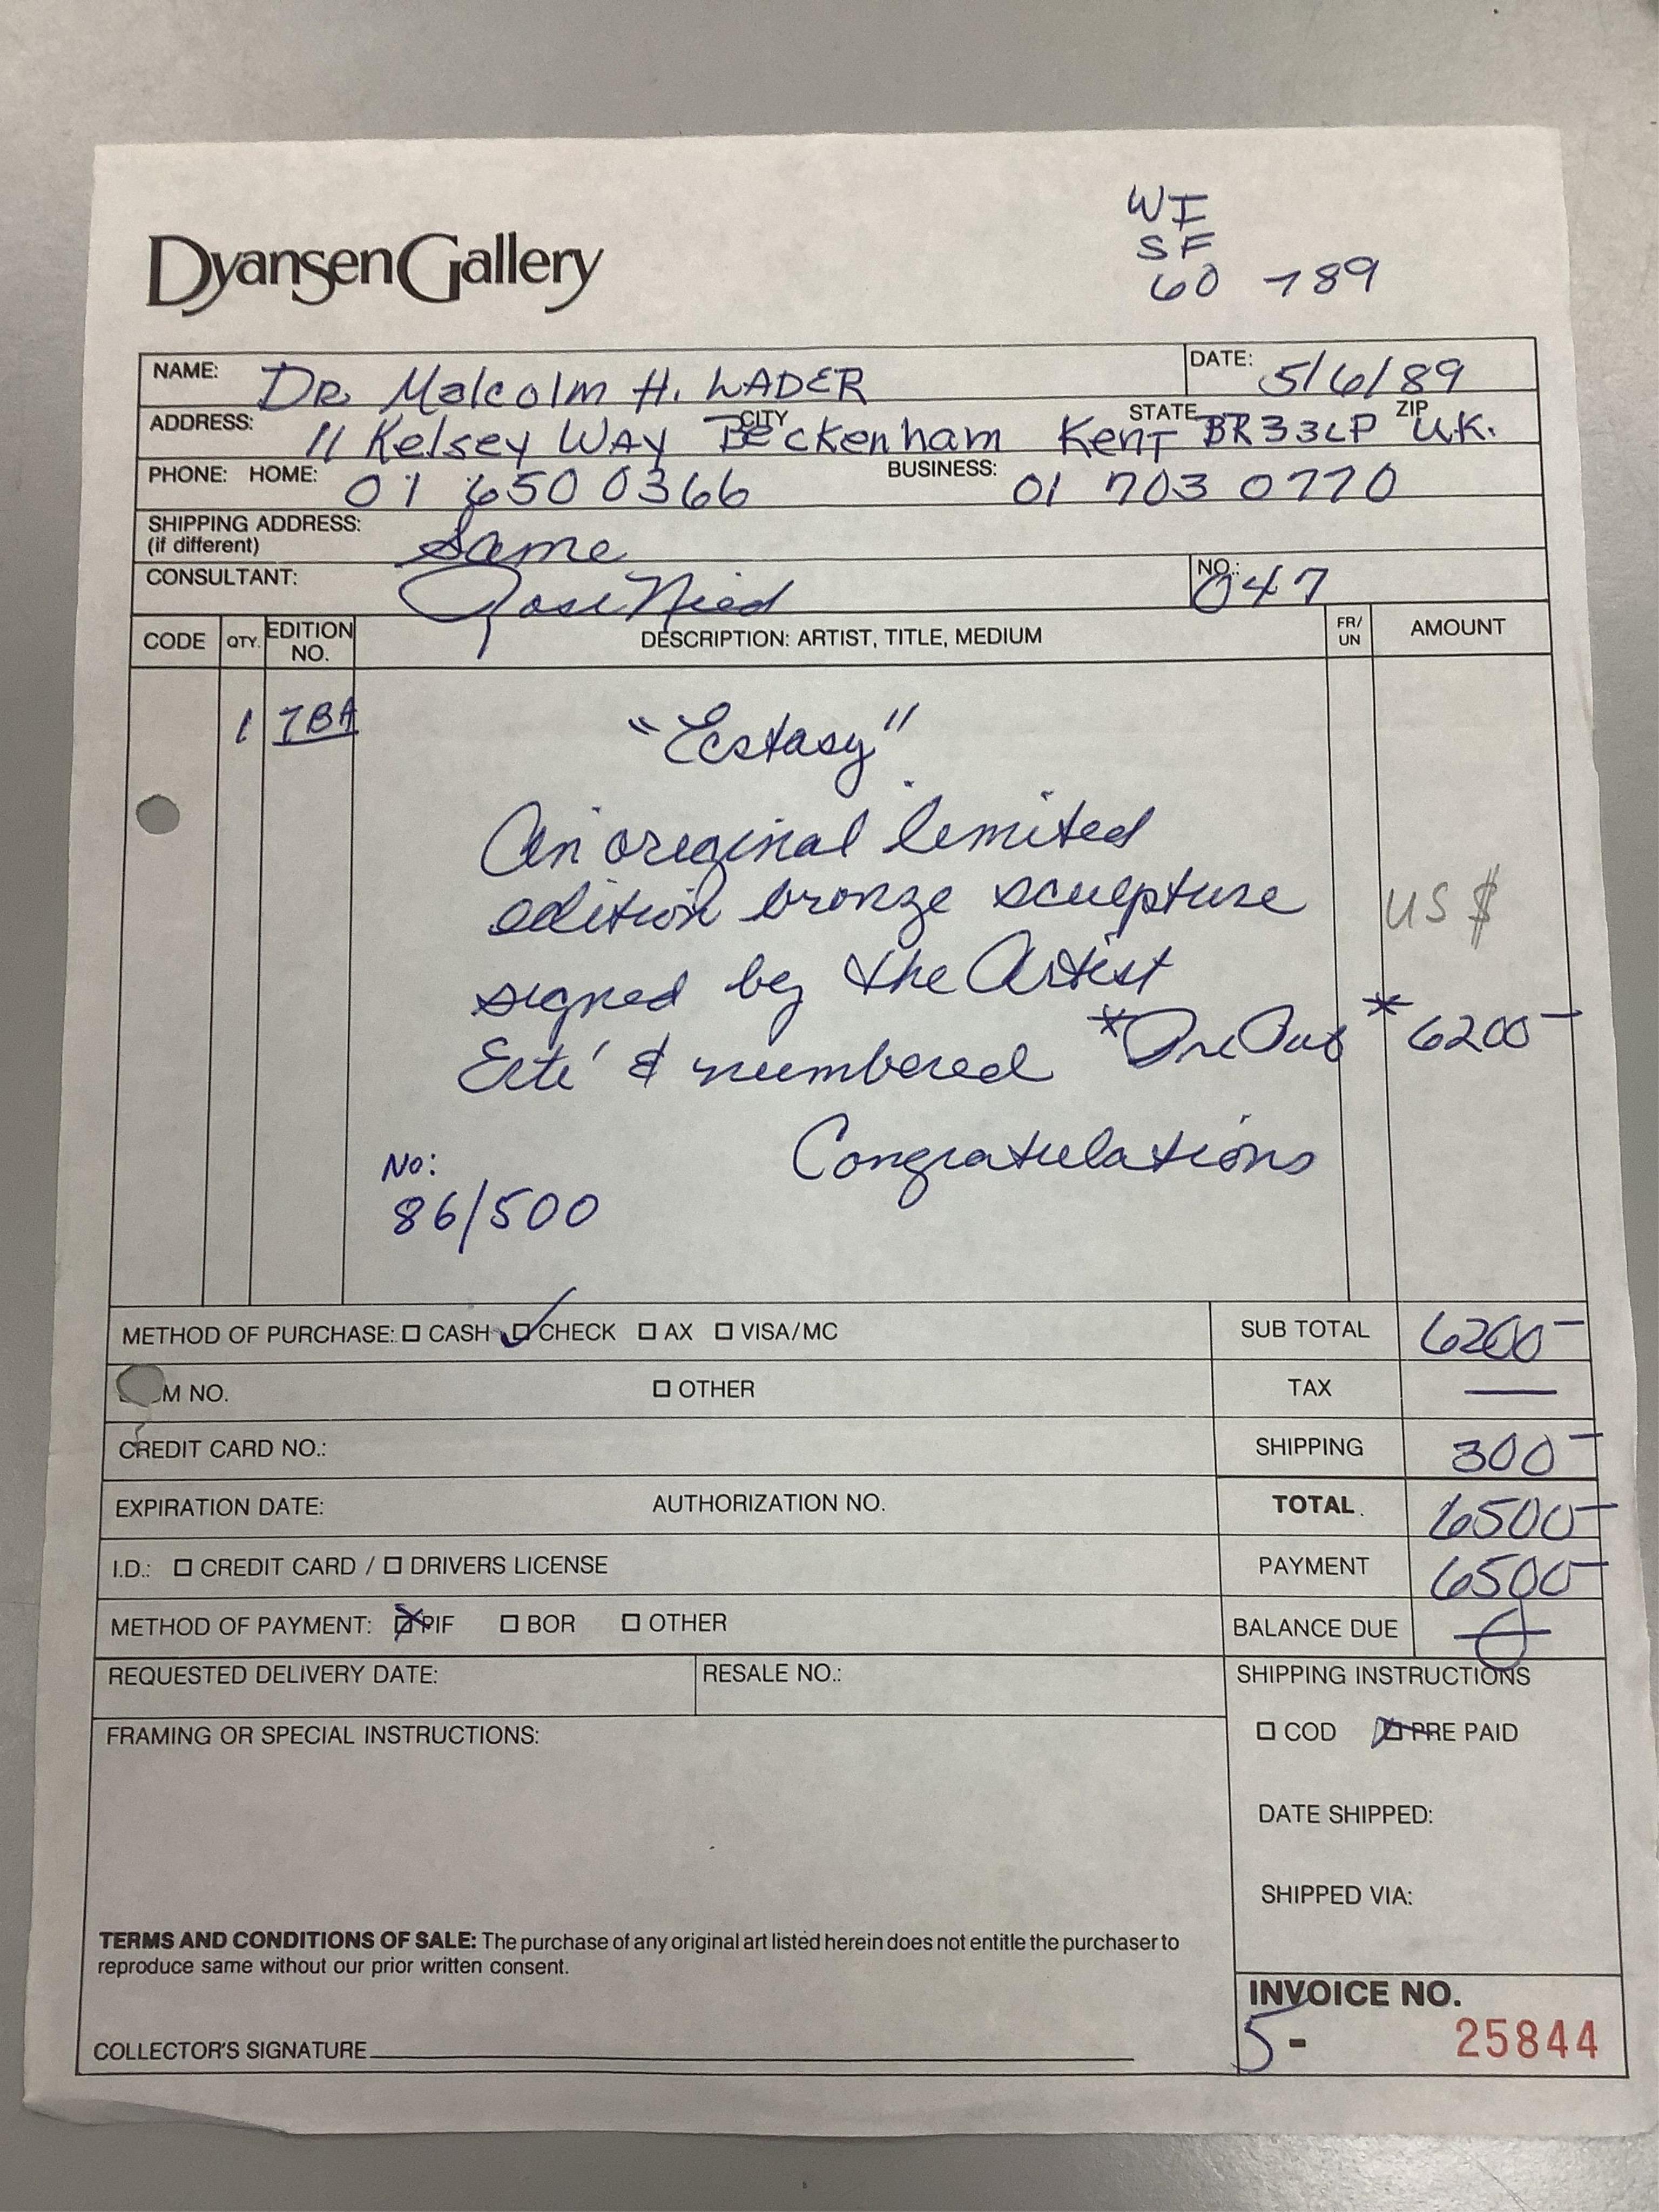 Dyansen Gallery
WI
SF
60 789
NAME: DR. Malcolm H. WADER DATE: 5/6/89
ADDRESS: 11 Kelsey WAY CITY Beckenham STATE Kent BR3 3LP ZIP U.K.
PHONE: HOME: 01 650 0366 BUSINESS: 01 703 0770
SHIPPING ADDRESS: Same
(if different)
CONSULTANT: NO.: 047
CODE QTY. EDITION NO. DESCRIPTION: ARTIST, TITLE, MEDIUM FR/UN AMOUNT
1 TBA "Ecstasy"
An original limited
edition bronze sculpture US $
signed by the Artist
Erté & numbered * Pre Pub * 6200-
Congratulations
No:
86/500
METHOD OF PURCHASE: CASH CHECK AX VISA/MC SUB TOTAL 6200-
M NO. OTHER TAX —
CREDIT CARD NO.: SHIPPING 300-
EXPIRATION DATE: AUTHORIZATION NO. TOTAL 6500-
I.D.: CREDIT CARD / DRIVERS LICENSE PAYMENT 6500-
METHOD OF PAYMENT: PIF BOR OTHER BALANCE DUE 0
REQUESTED DELIVERY DATE: RESALE NO.: SHIPPING INSTRUCTIONS
FRAMING OR SPECIAL INSTRUCTIONS: COD PRE PAID
DATE SHIPPED:
SHIPPED VIA:
TERMS AND CONDITIONS OF SALE: The purchase of any original art listed herein does not entitle the purchaser to
reproduce same without our prior written consent.
INVOICE NO.
COLLECTOR'S SIGNATURE 5- 25844